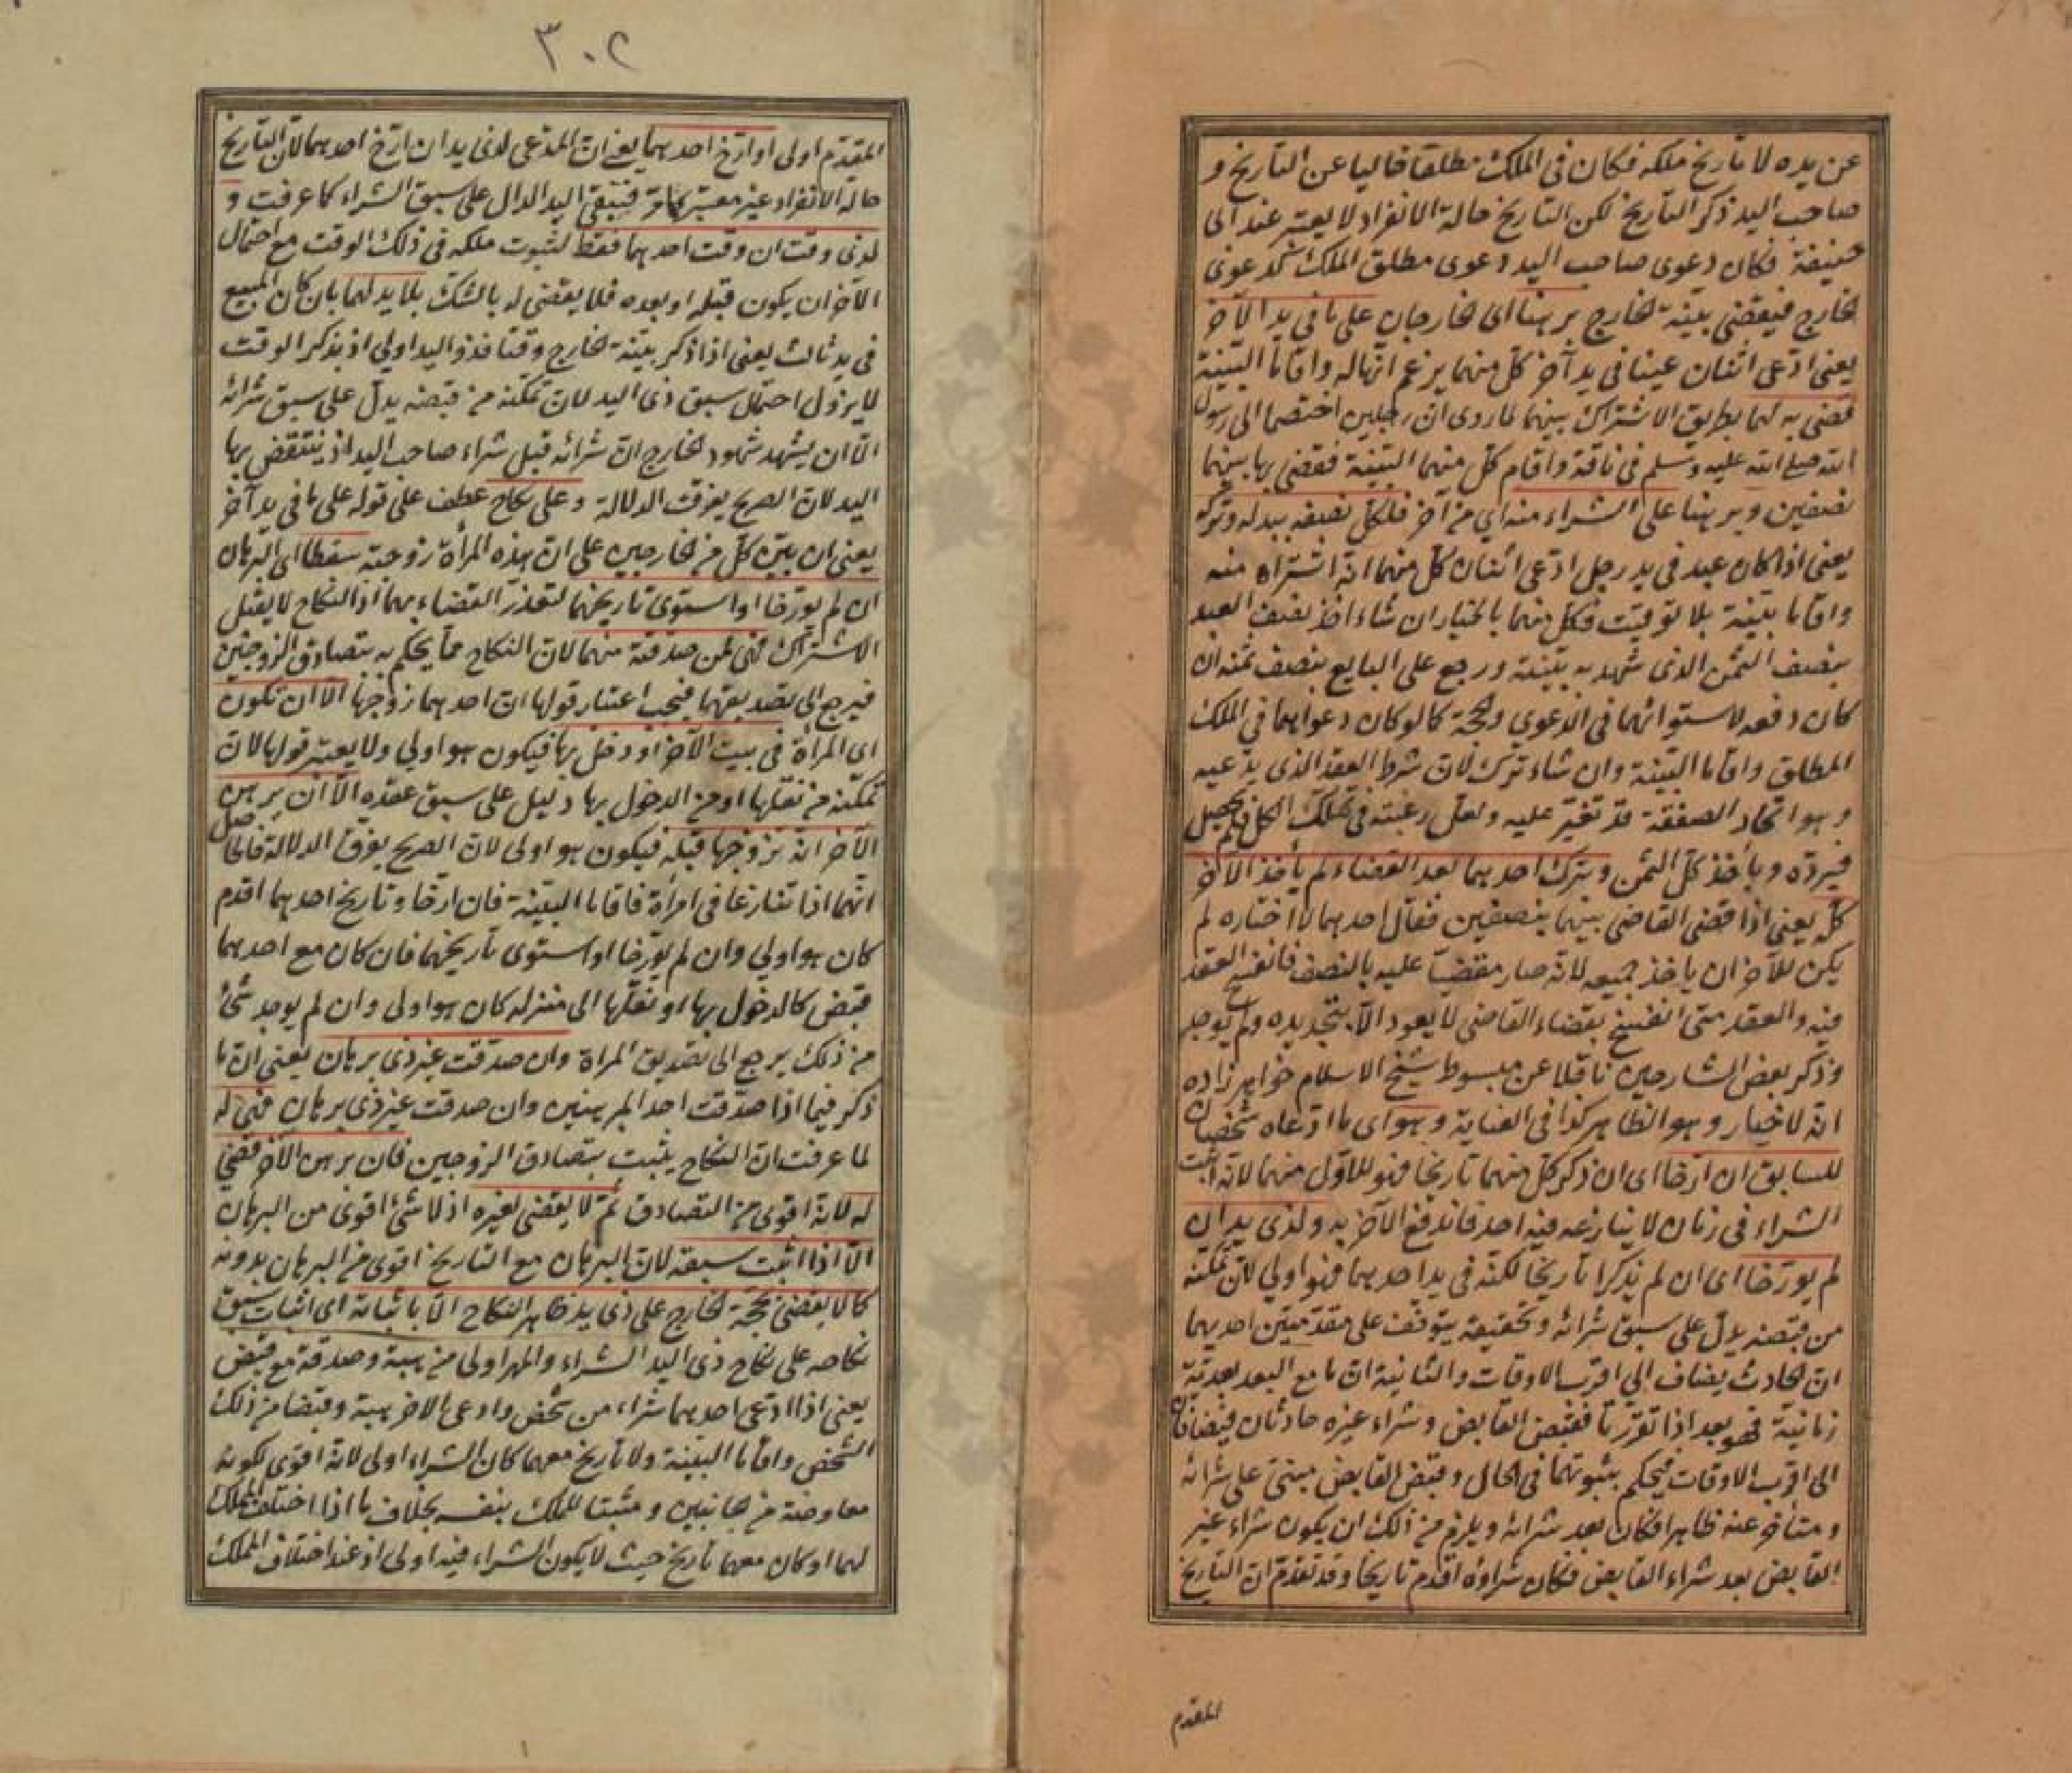 عن يده لا تاريخ ملكه فكان فى الملك مطلقا خاليا عن التاريخ و
صاحب اليد ذكر التاريخ لكن التاريخ حالة الانفراد لا يعتبر عند ابى
حنيفة فكان دعوى صاحب اليد دعوى مطلق الملك كدعوى
الخارج فيقضى ببينة الخارج برهنا اى الخارجان على ما فى يد الآخر
يعنى ادعى اثنان عينا فى يد آخر كل منهما يزعم انها له واقاما البينة
قضى به لهما بطريق الاشتراك بينهما لما روى ان رجلين اختصما الى رسول
الله صلى الله عليه وسلم فى ناقة واقام كل منهما البينة فقضى بها بينهما
نصفين وبرهنا على الشراء منه اى من آخر فلكل نصفه ببدله وتركه
يعنى اذا كان عبد فى يد رجل ادعى اثنان كل منهما انه اشتراه منه
واقاما بينة بلا توقيت فكل منهما بالخيار ان شاء اخذ نصف العبد
بنصف الثمن الذى شهد به بينة ورجع على البايع بنصف ثمنه ان
كان دفعه لاستوائهما فى الدعوى والحجة كما لو كان دعواهما فى الملك
المطلق واقاما البينة وان شاء ترك لان شرط العقد الذى يدعيه
وهو اتحاد الصفقة قد تغير عليه ولعل رغبته فى تملك الكل فلم يحصل
فيرده ويأخذ كل الثمن وبترك احدهما بعد القضاء لم يأخذ الآخر
كله يعنى اذا قضى القاضى بينهما بنصفين فقال احدهما لا اختاره لم
يكن للآخر ان ياخذ جميعه لانه صار مقضيا عليه بالنصف فانفسخ العقد
فيه والعقد متى انفسخ بقضاء القاضى لا يعود الا بتجديده ولم يوجد
وذكر بعض الشارحين ناقلا عن مبسوط شيخ الاسلام خواهر زاده
انه لا خيار وهو الظاهر كذا فى العناية وهو اى ما ادعاه شخصان
للسابق ان ارخا اى ان ذكر كل منهما تاريخا فهو للاول منهما لانه اثبت
الشراء فى زمان لا ينازعه فيه احد فاندفع الآخر به ولذى يد ان
لم يورخا اى ان لم يذكرا تاريخا لكنه فى يد احدهما فهو اولى لان تمكنه
من قبضه يدل على سبق شرائه وتحقيقه يتوقف على مقدمتين احديهما
ان الحادث يضاف الى اقرب الاوقات والثانية ان ما مع البعد بعدية
زمانية فهو بعد اذا تقررتا فقبض القابض وشراء غيره حادثان فيضافان
الى اقرب الاوقات فيحكم بثبوتهما فى الحال وقبض القابض مبنى على شرائه
ومتأخر عنه ظاهرا فكان بعد شرائه ويلزم من ذلك ان يكون شراء غير
القابض بعد شراء القابض فكان شراؤه اقدم تاريخا وقد تقدم ان التاريخ
المقدم
٣٠٢
المقدم اولى او ارخ احدهما يعنى ان المدعى لذى يد ان ارخ احدهما لان التاريخ
حالة الانفراد غير معتبر كما مر فتبقى اليد الدال على سبق الشراء كما عرفت و
لذى وقت ان وقت احدهما فقط لثبوت ملكه فى ذلك الوقت مع احتمال
الآخر ان يكون قبله او بعده فلا يقضى له بالشك بلا يد لهما بان كان المبيع
فى يد ثالث يعنى اذا ذكر بينة الخارج وقتا فذو اليد اولى اذ بذكر الوقت
لا يزول احتمال سبق ذى اليد لان تمكنه من قبضه يدل على سبق شرائه
الا ان يشهد شهود الخارج ان شرائه قبل شراء صاحب اليد اذ ينتقض بها
اليد لان الصريح يفوق الدلالة وعلى نكاح عطف على قوله على ما فى يد آخر
يعنى ان بين كل من الخارجين على ان هذه المرأة زوجته سقطا اى البرهان
ان لم يورخا او استوى تاريخهما لتعذر القضاء بهما اذ النكاح لا يقبل
الاشتراك فهى لمن صدقته منهما لان النكاح مما يحكم به بتصادق الزوجين
فيرجع الى تصديقهما فيجب اعتبار قولها ان احدهما زوجها الا ان تكون
اى المرأة فى بيت الآخر او دخل بها فيكون هو اولى ولا يعتبر قولها لان
تمكنه من نقلها او من الدخول بها دليل على سبق عقده الا ان برهن
الآخر انه تزوجها قبله فيكون هو اولى لان الصريح يفوق الدلالة فالحاصل
انهما اذا تنازعا فى امرأة فاقاما البينة فان ارخا وتاريخ احدهما اقدم
كان هو اولى وان لم يؤرخا او استوى تاريخهما فان كان مع احدهما
قبض كالدخول بها او نقلها الى منزله كان هو اولى وان لم يوجد شئ
من ذلك يرجع الى تصديق المرأة وان صدقت غير ذى برهان يعنى ان ما
ذكر فيما اذا صدقت احد المبرهنين وان صدقت غير ذى برهان فهى له
لما عرفت ان النكاح يثبت بتصادق الزوجين فان برهن الآخر قضى
له لانه اقوى من التصادق ثم لا يقضى لغيره اذ لا شئ اقوى من البرهان
الا اذا اثبت سبقه لان البرهان مع التاريخ اقوى من البرهان بدونه
كما لا يقضى بحجة الخارج على ذى يد ظاهر النكاح الا باثباته اى اثبات سبق
نكاحه على نكاح ذى اليد الشراء والمهر اولى من هبة وصدقة مع قبض
يعنى اذا ادعى احدهما شراء من شخص وادعى الآخر هبة وقبضا من ذلك
الشخص واقاما البينة ولا تاريخ معهما كان الشراء اولى لانه اقوى لكونه
معاوضة من جانبين ومثبتا للملك بنفسه بخلاف ما اذا اختلف المملك
لهما او كان معهما تاريخ حيث لا يكون الشراء فيه اولى اذ عند اختلاف المملك